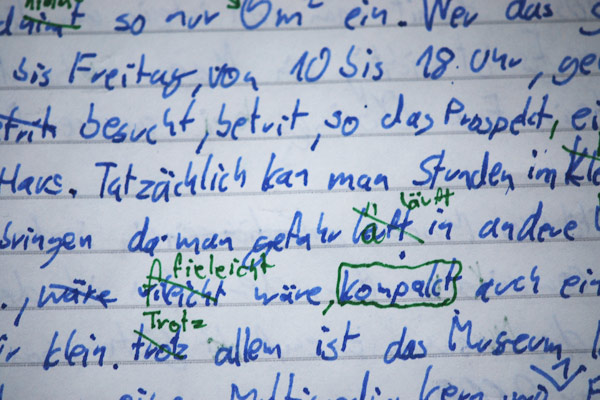 nimmt so nur 50m² ein. Wer das
bis Freitag, von 10 bis 18 Uhr, ge
besucht, betrit, so das Prospekt, ei
Haus. Tatzächlich kan man Stunden im Kle
bringen da man gefahr läuft in andere
., wäre fieleicht wäre, kompakt auch ein
ir klein. Trotz allem ist das Museum